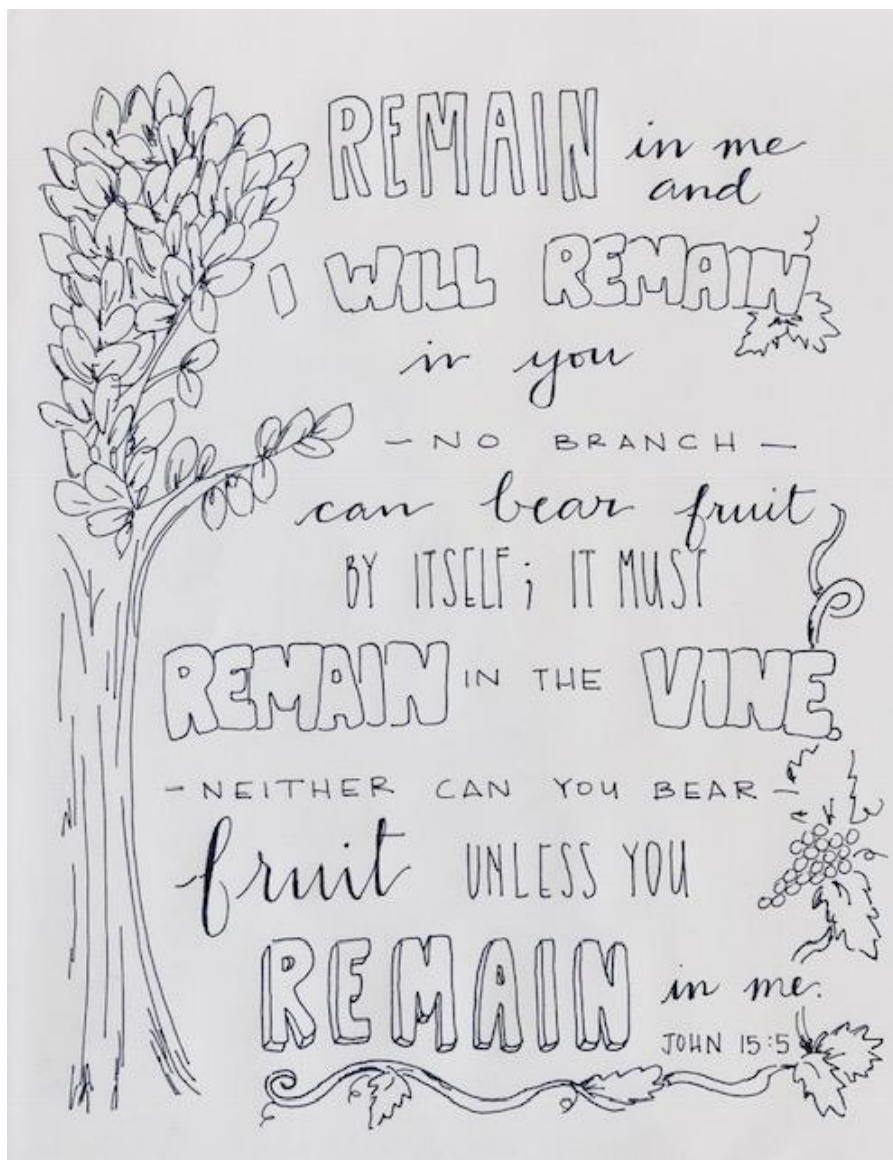 REMAIN in me
and
I WILL REMAIN
in you
- NO BRANCH -
can bear fruit
BY ITSELF; IT MUST
REMAIN IN THE VINE.
- NEITHER CAN YOU BEAR -
fruit UNLESS YOU
REMAIN in me.
JOHN 15:5